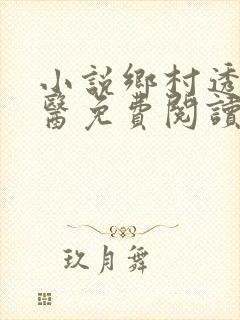 小說鄉村透
醫免費閱讀
玖月舞